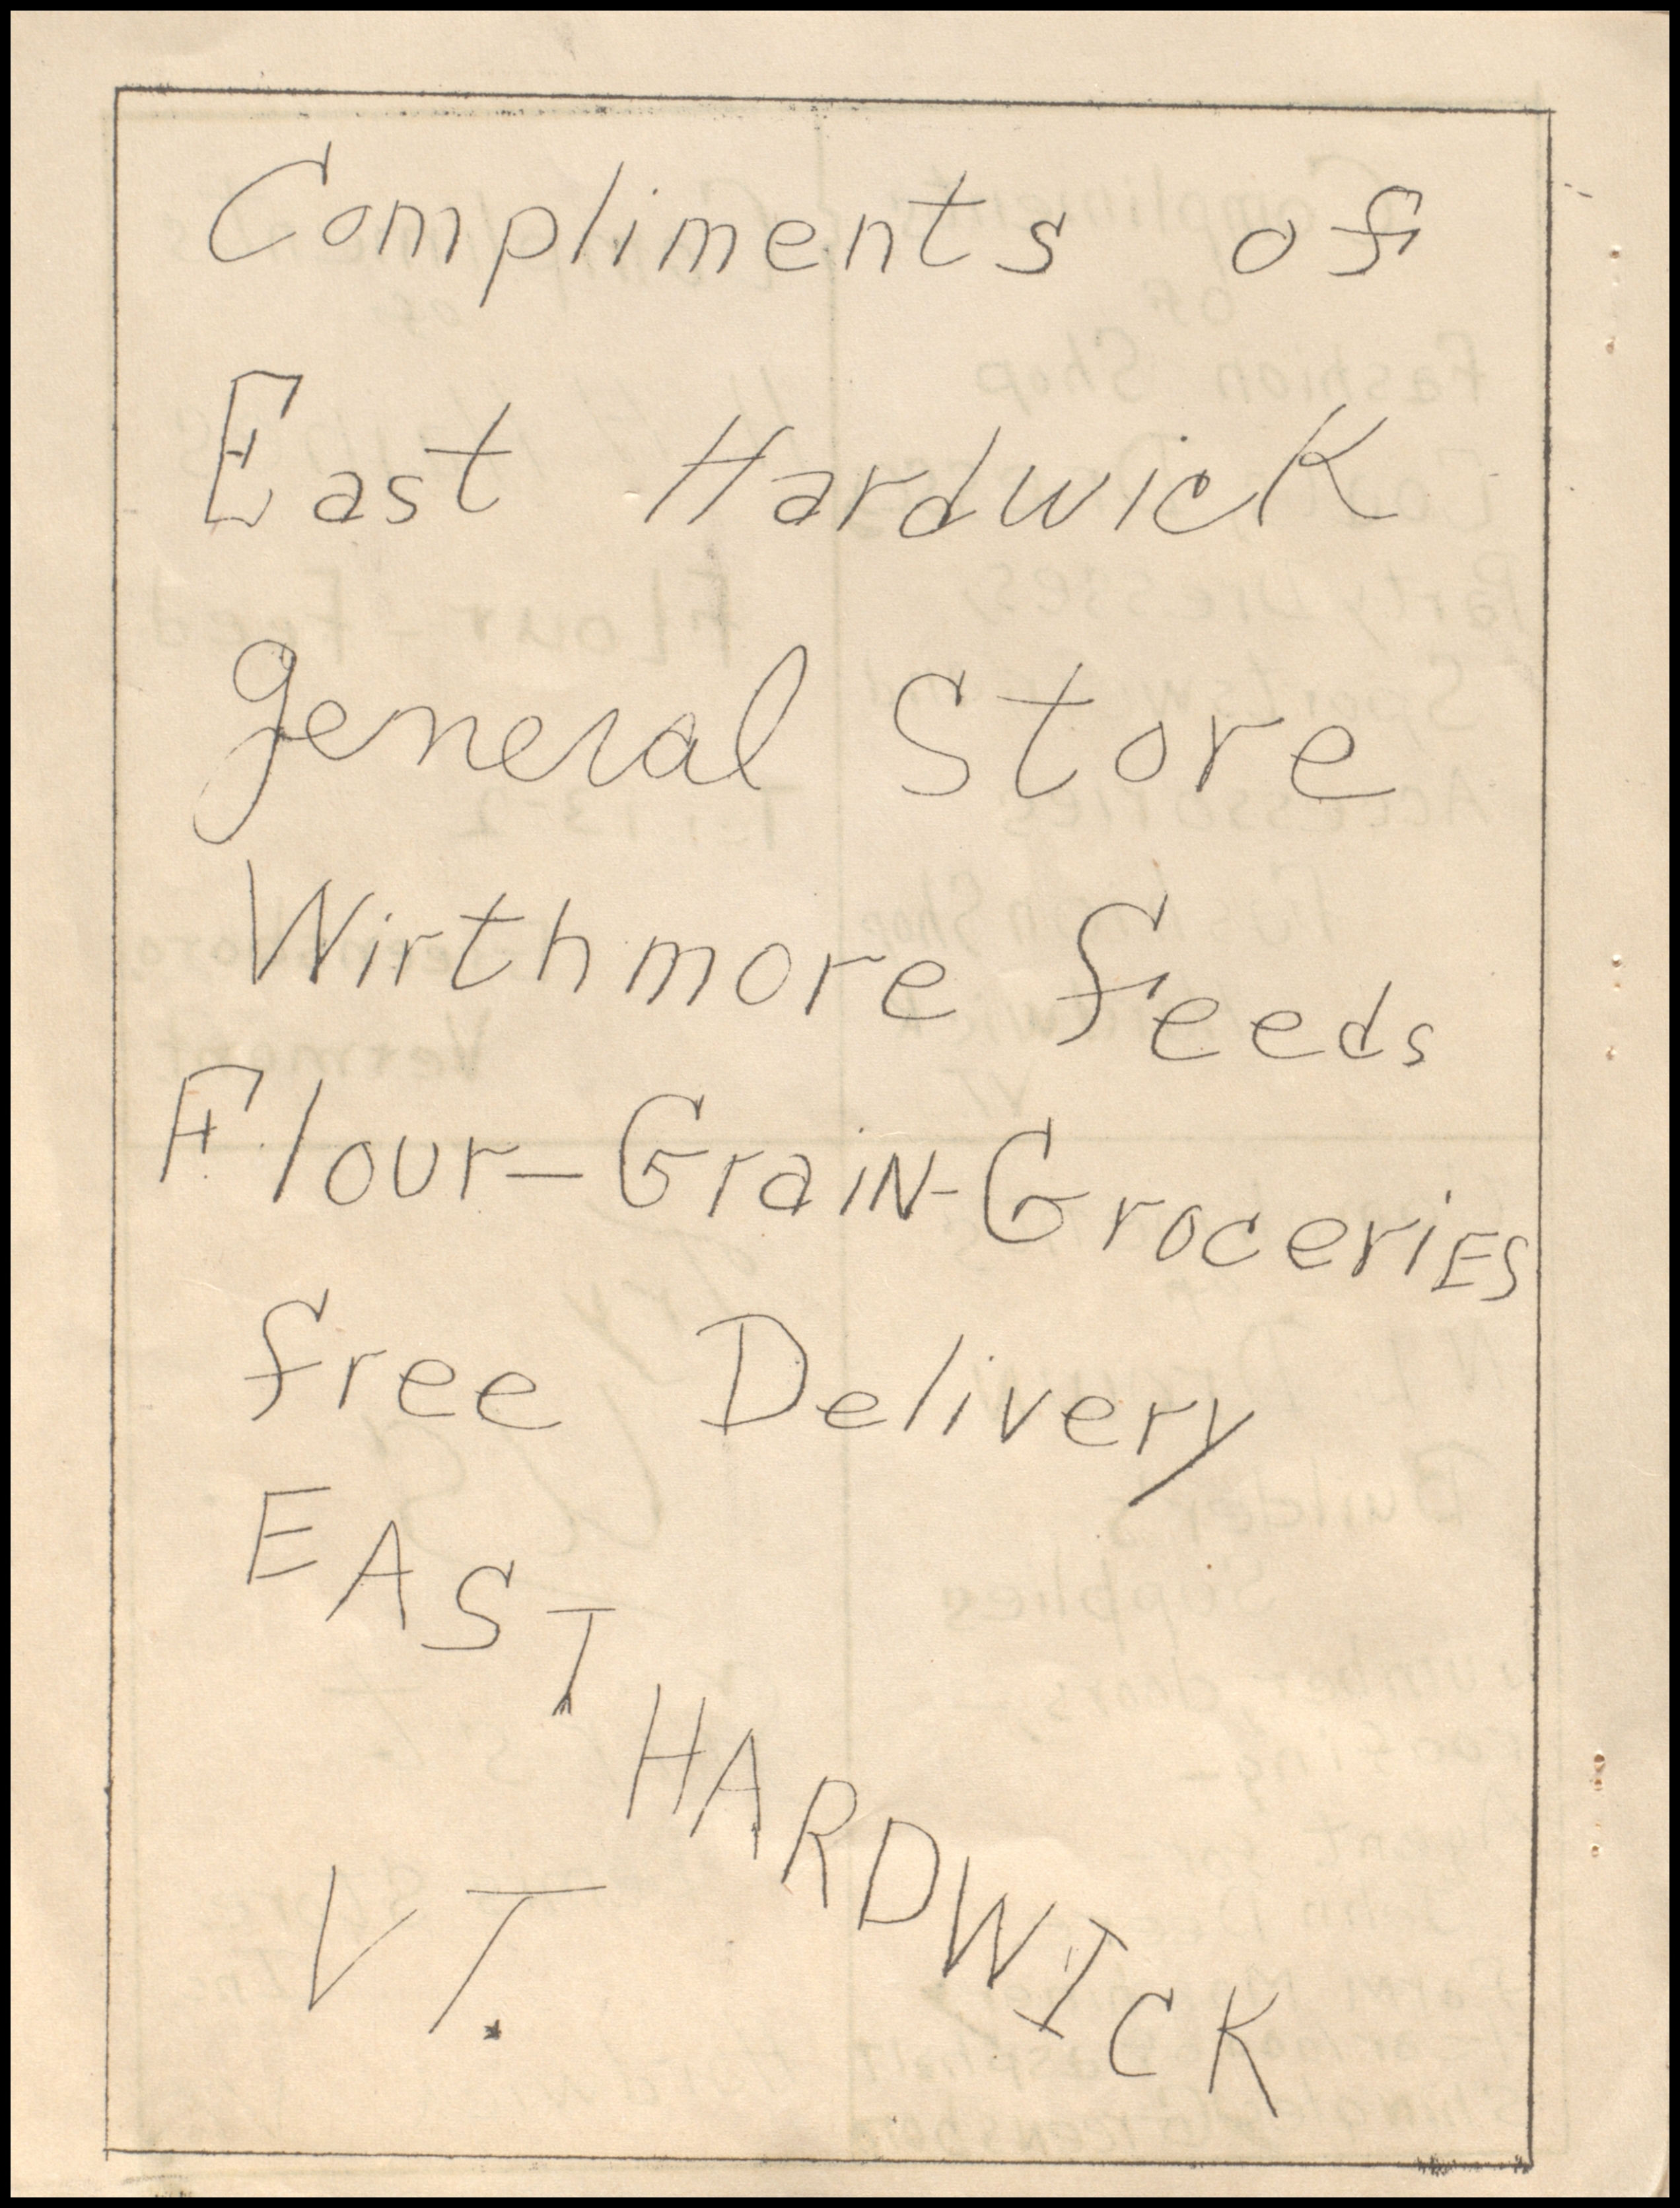 Compliments of
East Hardwick
general Store
Wirthmore feeds
Flour-GraiN-GroceriES
free Delivery
EAST HARDWICK
VT.